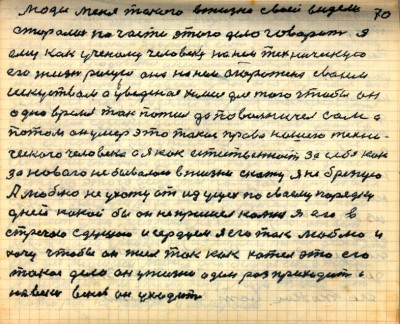 люди меня такого в жизни своей видели 70
старался по части этого дело говорит я
ему как ученому человеку на нем техническую
его жизнь рисую она на нем сторожена своем
искуством а уведеная химия для того чтобы он
одно время так попил да повольничел сам а
потом он умер это такое право нашего техни-
ческого человека а я как естественност за себя как
за нового не бывалого в жизни скажу я не брезгую
А люблю не ухожу от идущего по своему порядку
дней какой бы он не пришел ко мне я его в
стречаю с душою и сердцем я его так люблю и
хочу чтобы он жил так как хотел это его
такое дело он у жизни один раз приходит а
на веки веков он уходит